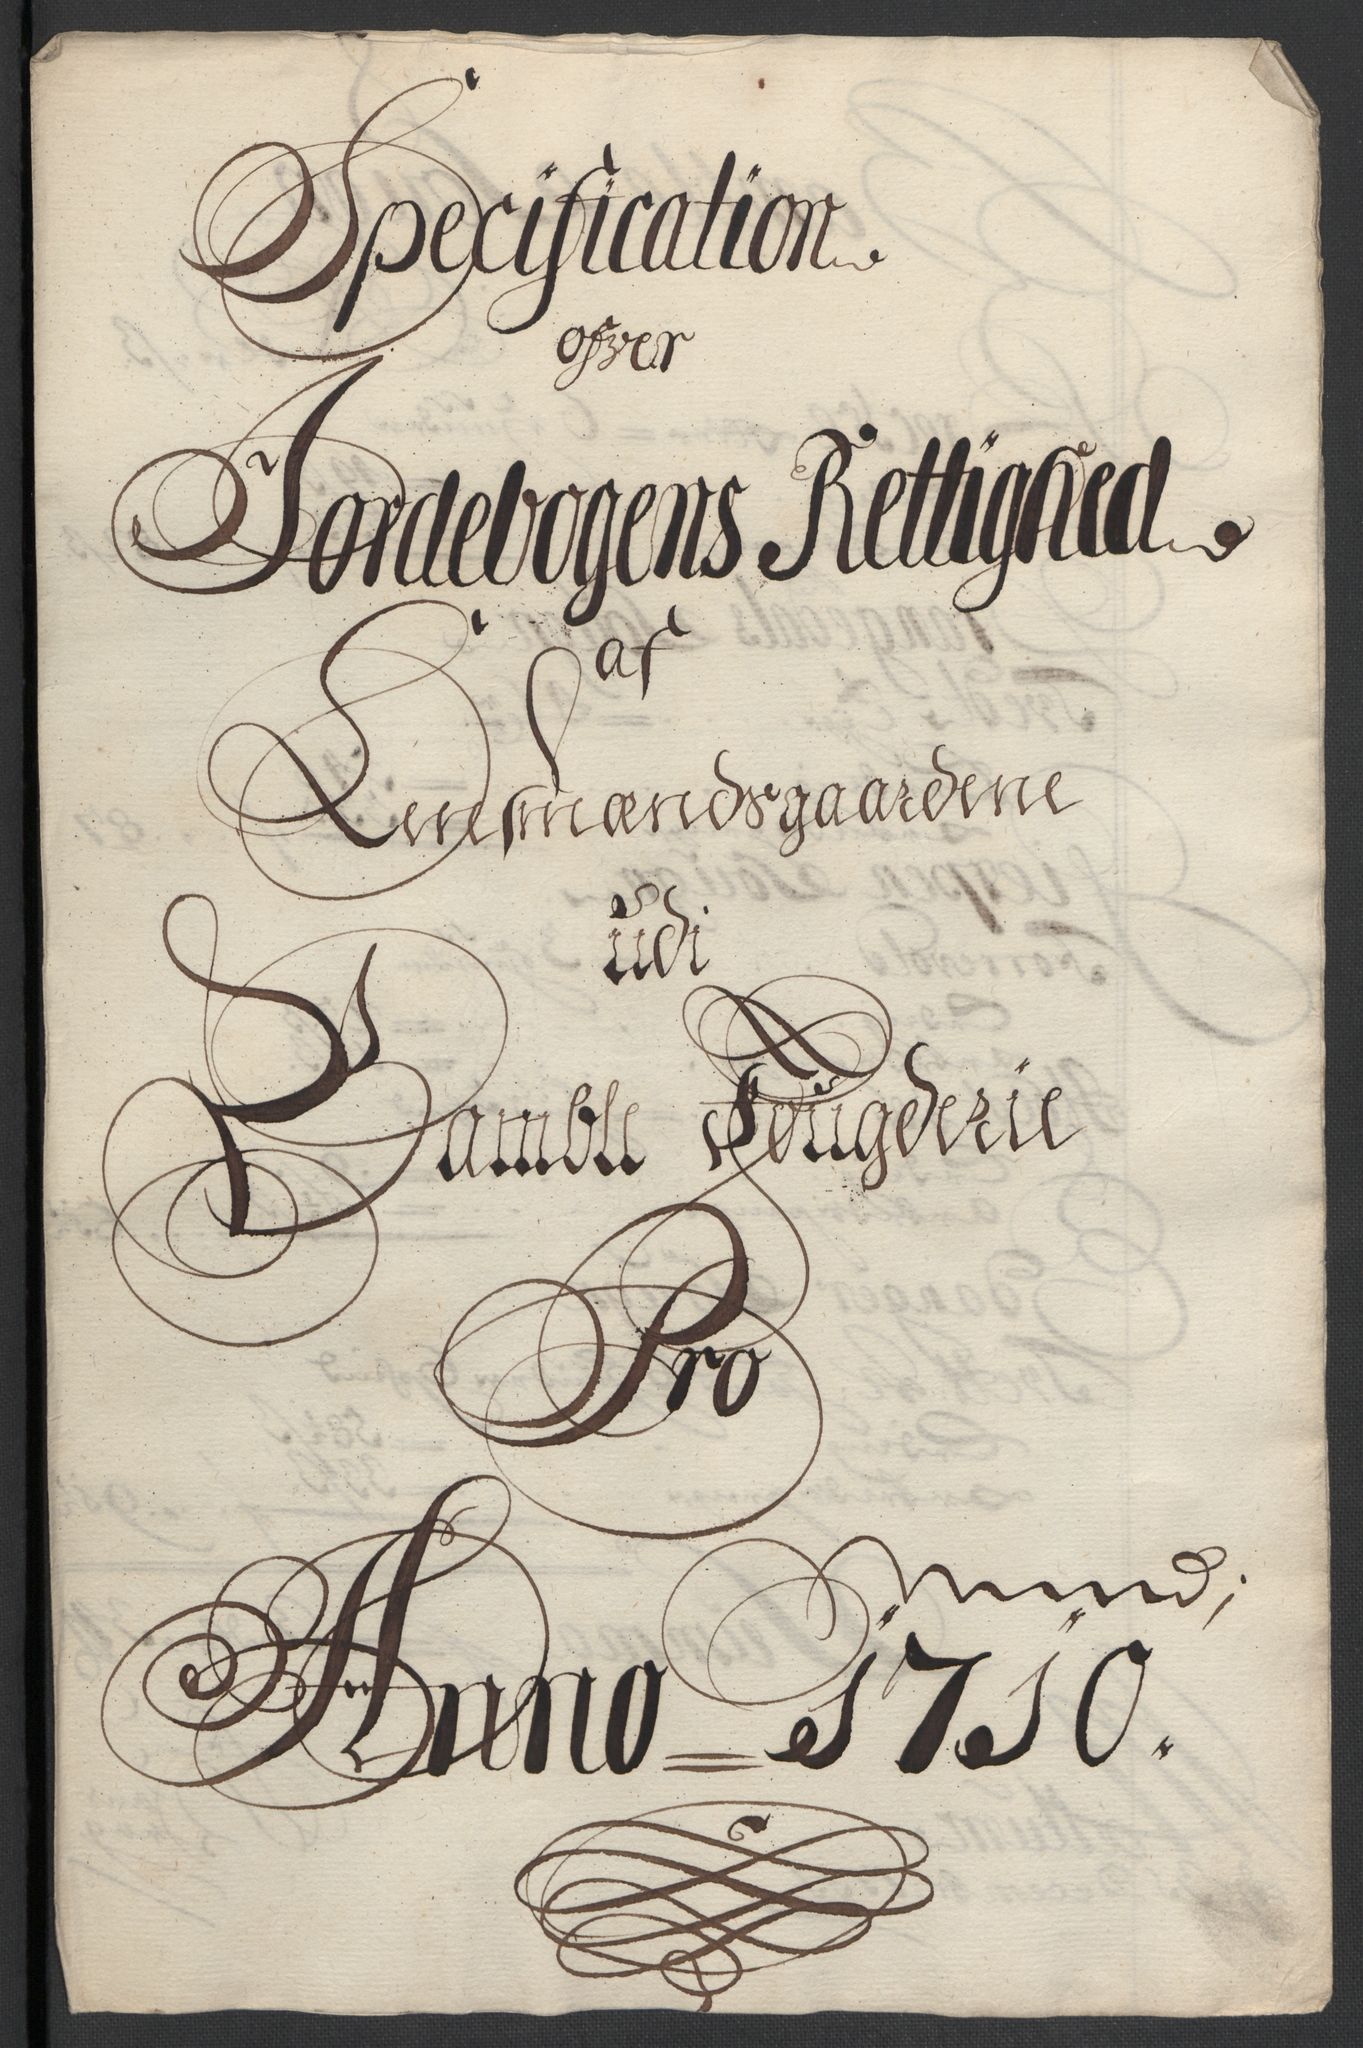 Specification
ofver
Jordebogens Rettighed
af
Lensmændsgaardene
udi
Bamble Fougderie
Pro
Anno 1710.